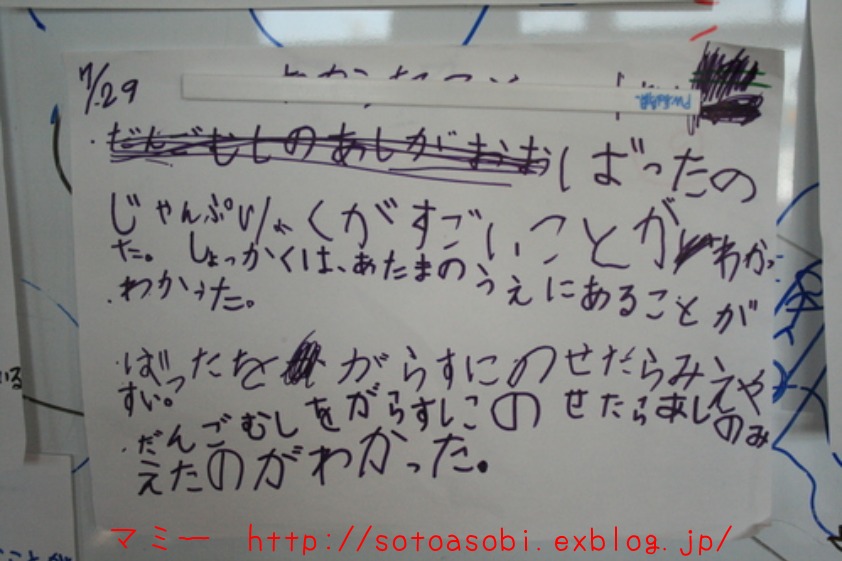 7/29
PW
・だんごむしのあしがおおしばったの
じゃんぷりょくがすごいことがわかっ
た。しょっかくは、あたまのうえにあることが
・わかった。
・ばったをがらすにのせたらみえや
すい。
・だんごむしをがらすにのせたらあしのみ
えたのがわかった。
マミー http://sotoasobi.exblog.jp/